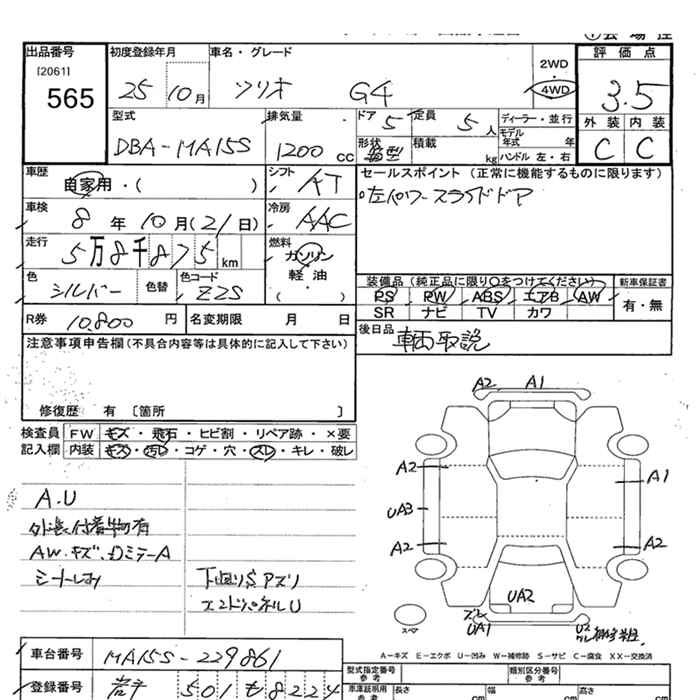 出品番号
[2061]
565
初度登録年月
25 10月
車名・グレード
ソリオ G4
2WD
4WD
評価点
3.5
外装 内装
C C
型式
DBA-MA15S
排気量
1200 CC
ドア 5
形状 箱型
定員 5人
積載 kg
ディーラー・並行
モデル年式 年
ハンドル 左・右
車歴
自家用・( )
シフト
AT
セールスポイント (正常に機能するものに限ります)
左パワースライドドア
車検
8年10月(21日)
冷房
AAC
走行
5万8千875km
燃料
ガソリン
軽油
( )
色
シルバー
色替
色コード
Z2S
装備品(純正品に限り○をつけてください)
PS PW ABS エアB AW
SR ナビ TV カワ
新車保証書
有・無
R券 10.800円
名変期限 月 日
後日品
車両取説
注意事項申告欄(不具合内容等は具体的に記入して下さい)
修復歴 有 [箇所 ]
検査員 FW キズ・飛石・ヒビ割・リペア跡・×要
記入欄 内装 キズ・汚レ・コゲ・穴・スレ・キレ・破レ
A.U
外装付着物有
AW.キズ.
下廻りSアズリ
エンドパネルU
A2 A1
A2 A1
UA3
A2 A2
UA2
ズレ
UA1
U2
スペア
A-キズ E-エクボ U-凹み W-補修跡 S-サビ C-腐食 XX-交換済
車台番号 MA15S-229861
登録番号 岩手 501 も 8224
型式指定番号
参考
類別区分番号
参考
車庫証明用
参考
長さ cm 幅 cm 高さ cm